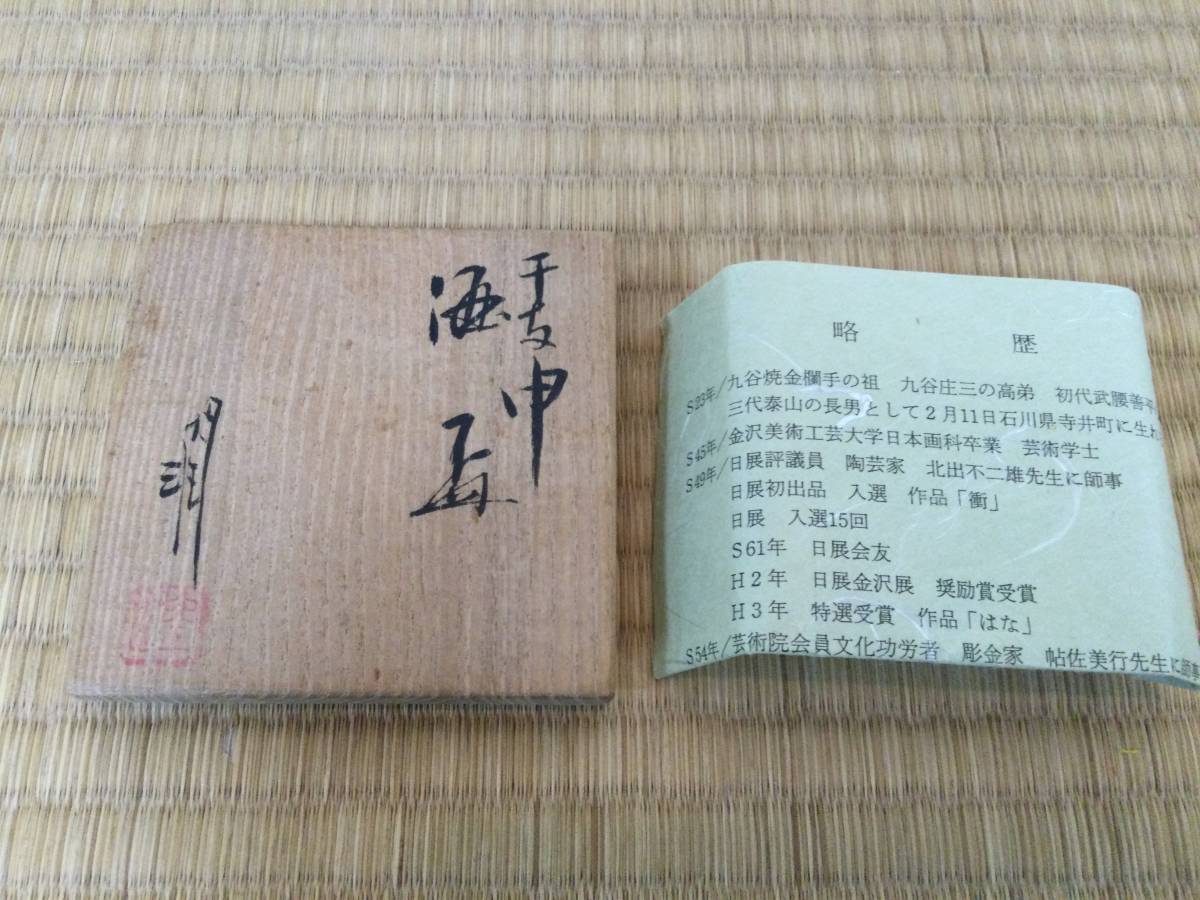 干支申
酒盃
略歴
S23年/九谷焼金襴手の祖 九谷庄三の高弟 初代武腰善平
三代泰山の長男として2月11日石川県寺井町に生れ
S45年/金沢美術工芸大学日本画科卒業 芸術学士
S49年/日展評議員 陶芸家 北出不二雄先生に師事
日展初出品 入選 作品「衝」
日展 入選15回
S61年 日展会友
H2年 日展金沢展 奨励賞受賞
H3年 特選受賞 作品「はな」
S54年/芸術院会員文化功労者 彫金家 帖佐美行先生に師事